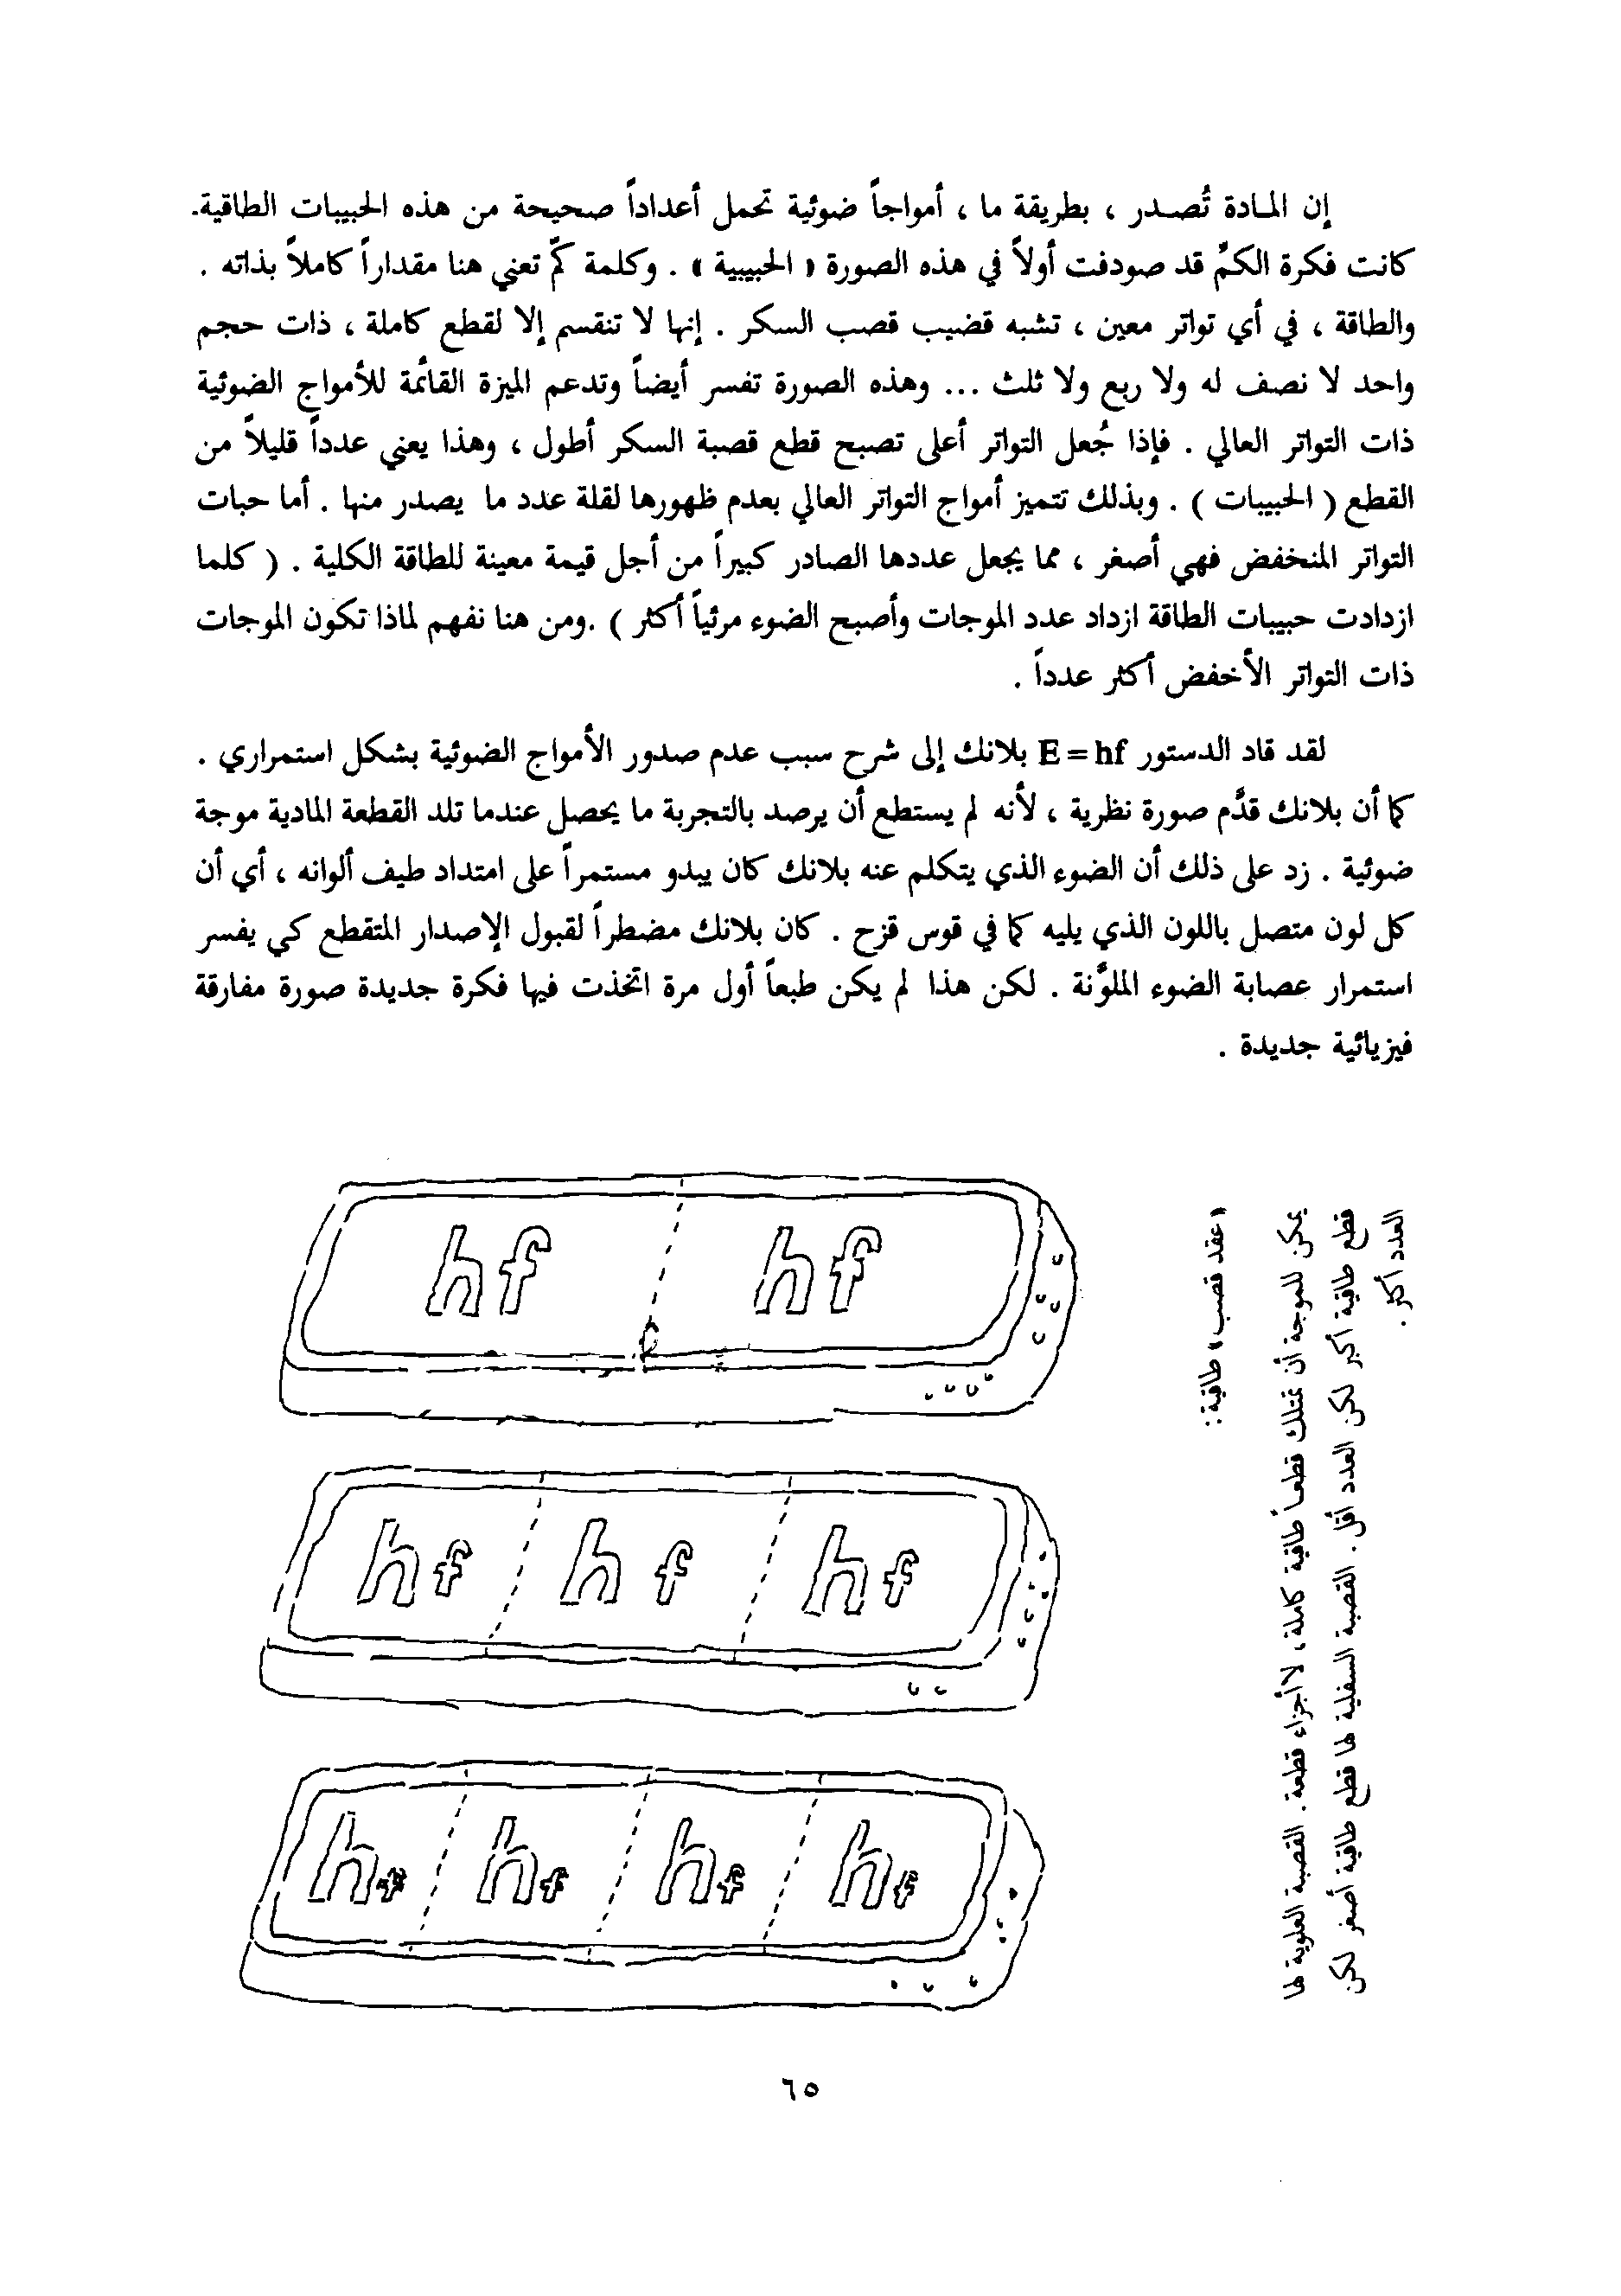 إن المادة تُصدر ، بطريقة ما ، أمواجاً ضوئية تحمل أعداداً صحيحة من هذه الحبيبات الطاقية.
كانت فكرة الكمّ قد صودفت أولاً في هذه الصورة « الحبيبية » . وكلمة كمّ تعني هنا مقداراً كاملاً بذاته .
والطاقة ، في أي تواتر معين ، تشبه قضيب قصب السكر . إنها لا تنقسم إلا لقطع كاملة ، ذات حجم
واحد لا نصف له ولا ربع ولا ثلث ... وهذه الصورة تفسر أيضاً وتدعم الميزة القائمة للأمواج الضوئية
ذات التواتر العالي . فإذا جُعل التواتر أعلى تصبح قطع قصبة السكر أطول ، وهذا يعني عدداً قليلاً من
القطع ( الحبيبات ) . وبذلك تتميز أمواج التواتر العالي بعدم ظهورها لقلة عدد ما يصدر منها . أما حبات
التواتر المنخفض فهي أصغر ، مما يجعل عددها الصادر كبيراً من أجل قيمة معينة للطاقة الكلية . ( كلما
ازدادت حبيبات الطاقة ازداد عدد الموجات وأصبح الضوء مرئياً أكثر ) .ومن هنا نفهم لماذا تكون الموجات
ذات التواتر الأخفض أكثر عدداً .
لقد قاد الدستور E = hf بلانك إلى شرح سبب عدم صدور الأمواج الضوئية بشكل استمراري .
كما أن بلانك قدَّم صورة نظرية ، لأنه لم يستطع أن يرصد بالتجربة ما يحصل عندما تلد القطعة المادية موجة
ضوئية . زد على ذلك أن الضوء الذي يتكلم عنه بلانك كان يبدو مستمراً على امتداد طيف ألوانه ، أي أن
كل لون متصل باللون الذي يليه كما في قوس قزح . كان بلانك مضطراً لقبول الإصدار المتقطع كي يفسر
استمرار عصابة الضوء الملوَّنة . لكن هذا لم يكن طبعاً أول مرة اتخذت فيها فكرة جديدة صورة مفارقة
فيزيائية جديدة .
hf hf
hf hf hf
hf hf hf hf
« عقد قصب » طاقية :
يمكن للموجة أن تمتلك قطعاً طاقية كاملة ، لا أجزاء قطعة . القصبة العلوية لها
قطع طاقية أكبر لكن العدد أقل . القصبة السفلية لها قطع طاقية أصغر لكن
العدد أكثر .
٦٥